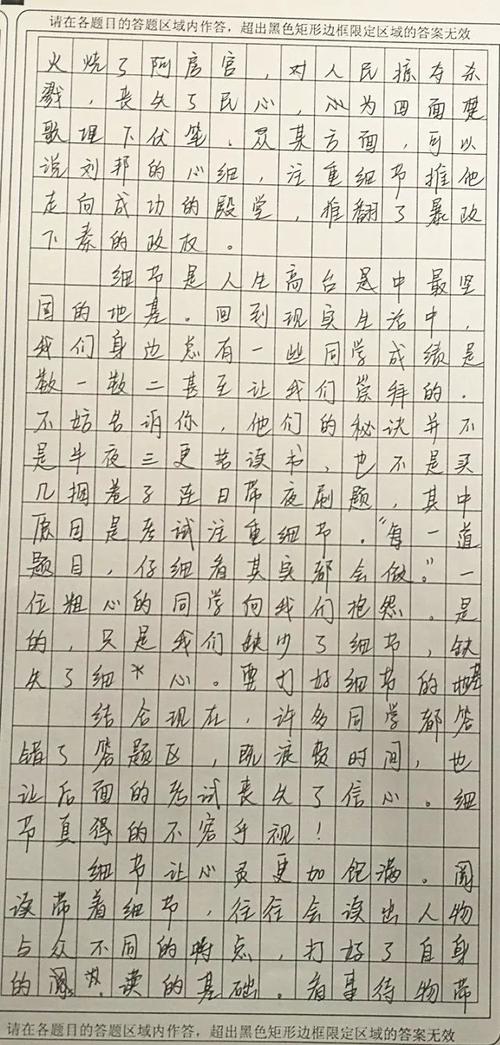 请在各题目的答题区域内作答，超出黑色矩形边框限定区域的答案无效
火烧了阿房宫，对人民掠夺杀
戮，丧失了民心，心为四面楚
歌埋下伏笔。众某方面，可以
说刘邦的心细，注重细节推他
走向成功的殿堂，推翻了暴政
下秦的政权。
细节是人生高台是中最坚
固的地基。回到现实生活中，
我们身边总有一些同学成绩是
数一数二甚至让我们崇拜的．
不妨告诉你，他们的秘诀并不
是半夜三更苦读书，也不是买
几捆卷子连日带夜刷题，其中
原因是考试注重细节．“每一道
题目，仔细看其实都会做。”一
位粗心的同学向我们抱怨．是
的，只是我们缺少了细节，缺
失了细心。要打好细节的地基
结合现在，许多同学都答
错了答题区，既浪费时间，也
让后面的考试丧失了信心。细
节真得的不容乎视！
细节让心灵更加饱满。阅
读带着细节，往往会读出人物
与众不同的特点，打好了自身
的阅读的基础。看事待物带
请在各题目的答题区域内作答，超出黑色矩形边框限定区域的答案无效